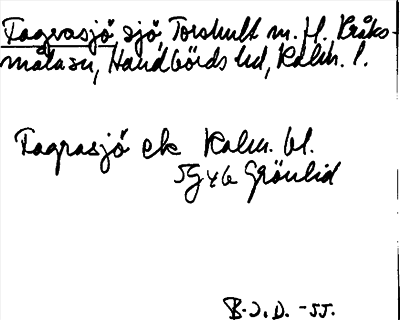 Fagrasjö sjö, Torshult m. fl. Kråks-
målasn, Handbörds hd, Kalm. l.
Fagrasjö ek Kalm. bl.
5G4b Grönlid
B.J.D. -55.